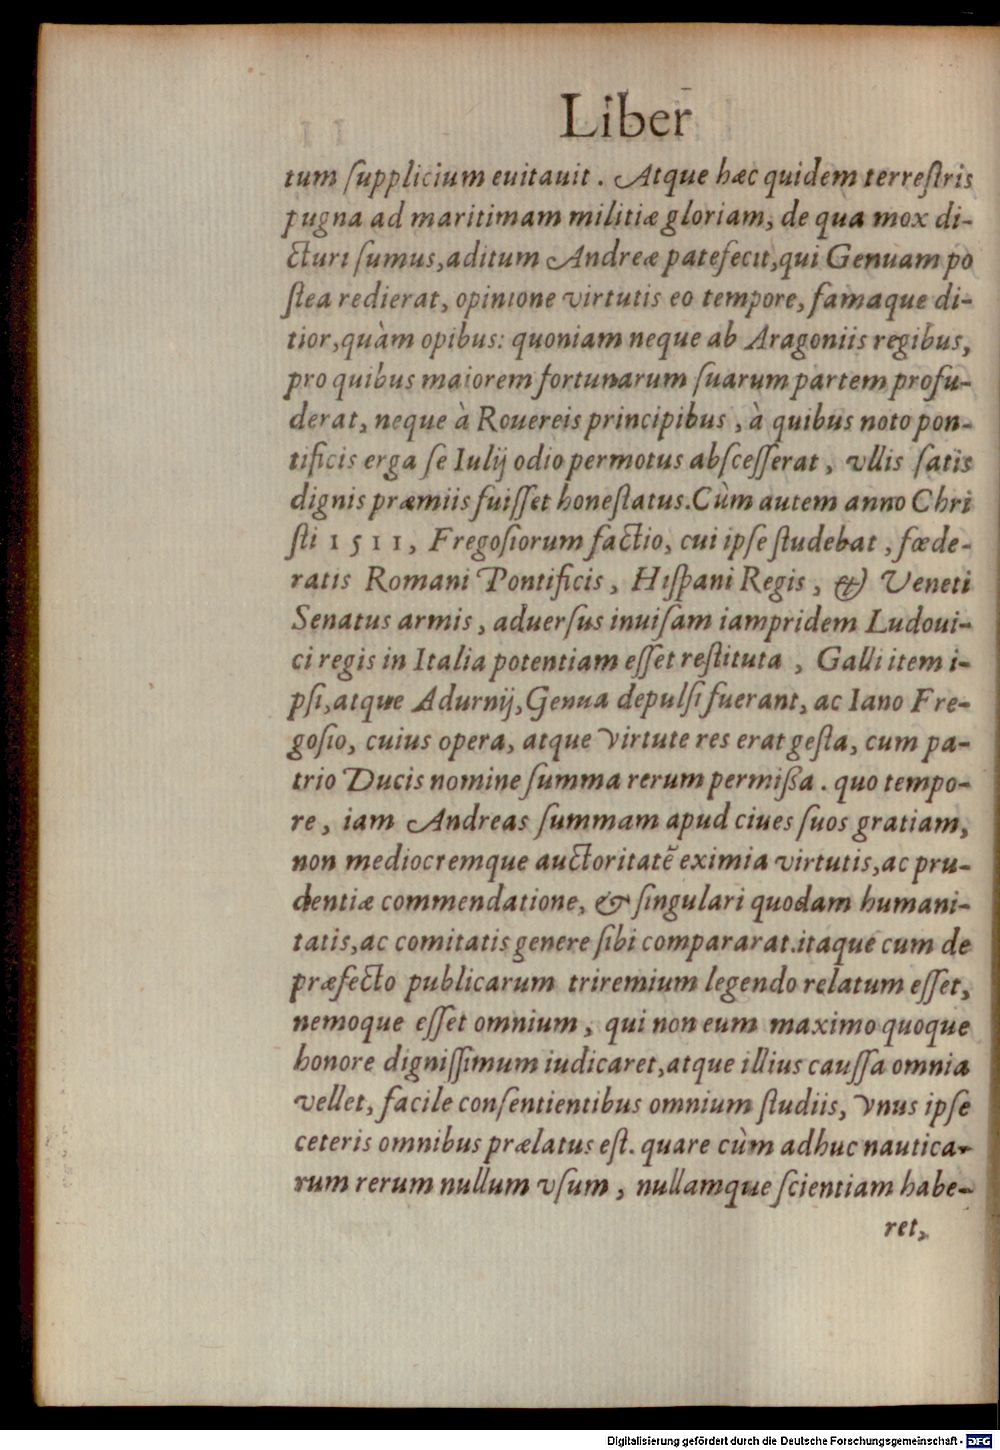 Liber
tum ſupplicium euitauit. Atque hæc quidem terreſtris
pugna ad maritimam militiæ gloriam, de qua mox di-
cturi ſumus, aditum Andreæ patefecit, qui Genuam po
ſtea redierat, opinione virtutis eo tempore, famaque di-
tior, quàm opibus: quoniam neque ab Aragoniis regibus,
pro quibus maiorem fortunarum ſuarum partem profu-
derat, neque à Rouereis principibus, à quibus noto pon-
tificis erga ſe Iulij odio permotus abſceſſerat, vllis ſatis
dignis præmiis fuiſſet honeſtatus. Cùm autem anno Chri
ſti 1511, Fregoſiorum factio, cui ipſe ſtudebat, fœde-
ratis Romani Pontificis, Hiſpani Regis, & Veneti
Senatus armis, aduerſus inuiſam iampridem Ludoui-
ci regis in Italia potentiam eſſet reſtituta, Galli item i-
pſi, atque Adurnij, Genua depulſi fuerant, ac Iano Fre-
goſio, cuius opera, atque virtute res erat geſta, cum pa-
trio Ducis nomine ſumma rerum permiſſa. quo tempo-
re, iam Andreas ſummam apud ciues ſuos gratiam,
non mediocremque auctoritatē eximia virtutis, ac pru-
dentiæ commendatione, & ſingulari quodam humani-
tatis, ac comitatis genere ſibi compararat. itaque cum de
præfecto publicarum triremium legendo relatum eſſet,
nemoque eſſet omnium, qui non eum maximo quoque
honore digniſſimum iudicaret, atque illius cauſſa omnia
vellet, facile conſentientibus omnium ſtudiis, vnus ipſe
ceteris omnibus prælatus eſt. quare cùm adhuc nautica-
rum rerum nullum vſum, nullamque ſcientiam habe-
ret,
Digitalisierung gefördert durch die Deutsche Forschungsgemeinschaft - DFG